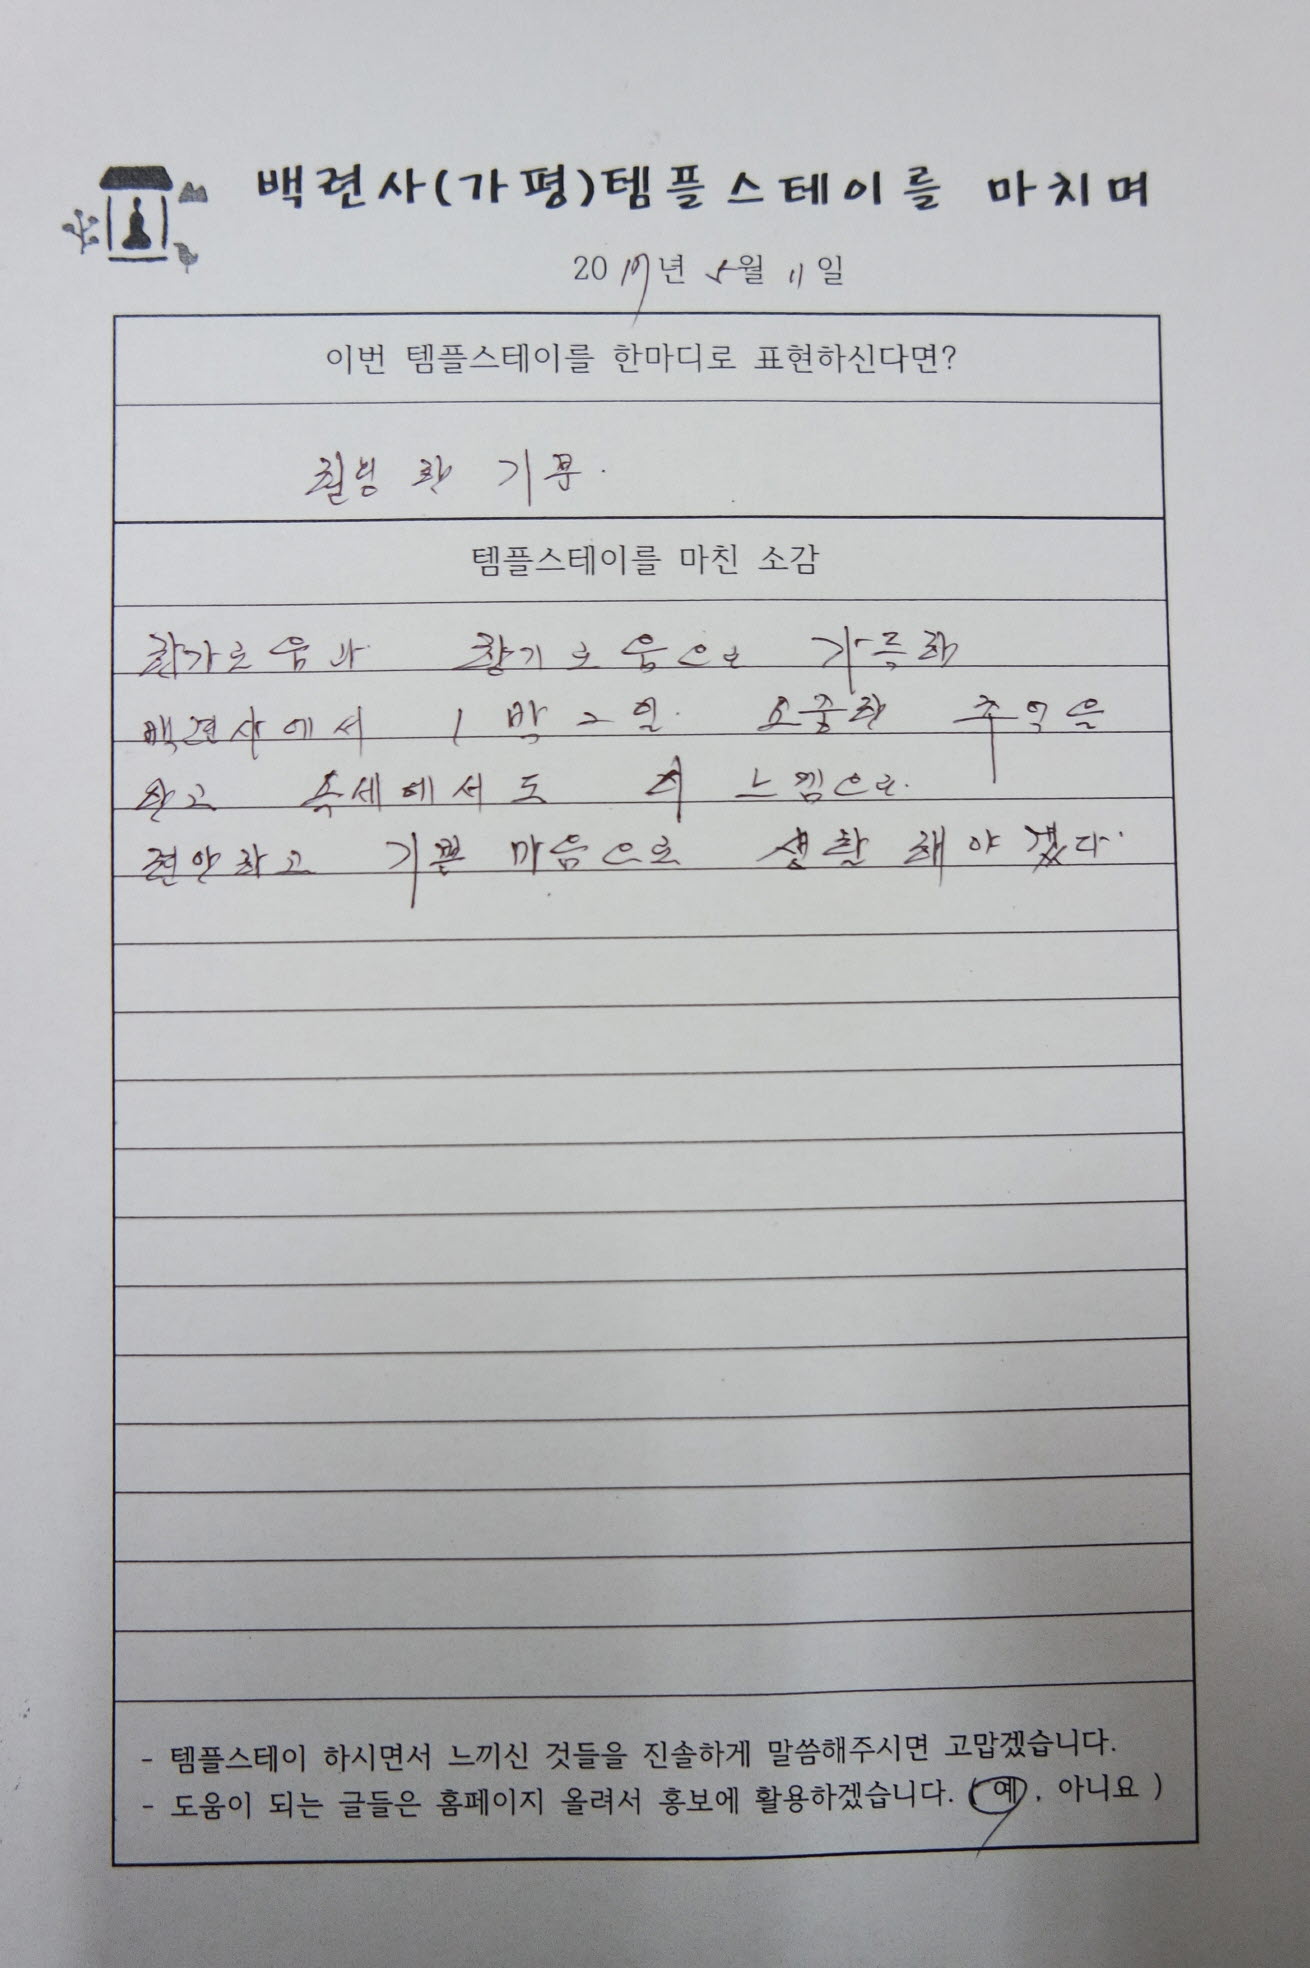 백련사(가평)템플스테이를 마치며
2017년 5월 11일
이번 템플스테이를 한마디로 표현하신다면?
한 기분.
템플스테이를 마친 소감
한가로움과 향기로움으로 가득한
백련사에서 1박 2일. 소중한 추억을
안고 속세에서도 이 느낌으로.
편안하고 기쁜 마음으로 생활 해야겠다.
- 템플스테이 하시면서 느끼신 것들을 진솔하게 말씀해주시면 고맙겠습니다.
- 도움이 되는 글들은 홈페이지 올려서 홍보에 활용하겠습니다. ( 예 , 아니요 )